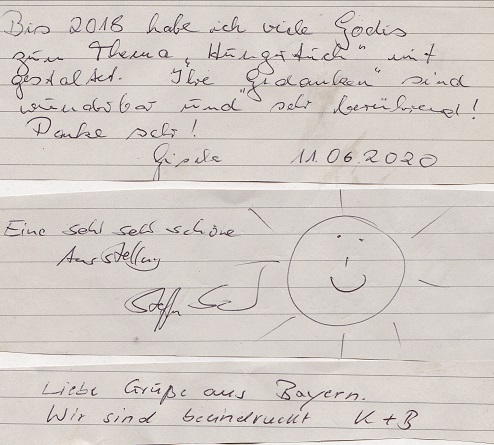 Bis 2018 habe ich viele Godis
zum Thema „Hungertuch" mit
gestaltet. Ihre "Gedanken" sind
wunderbar und sehr berührend!
Danke sehr!
Gisela 11.06.2020
Eine sehr sehr schöne
Ausstellung
Steffen
Liebe Grüße aus Bayern.
Wir sind beeindruckt K + B